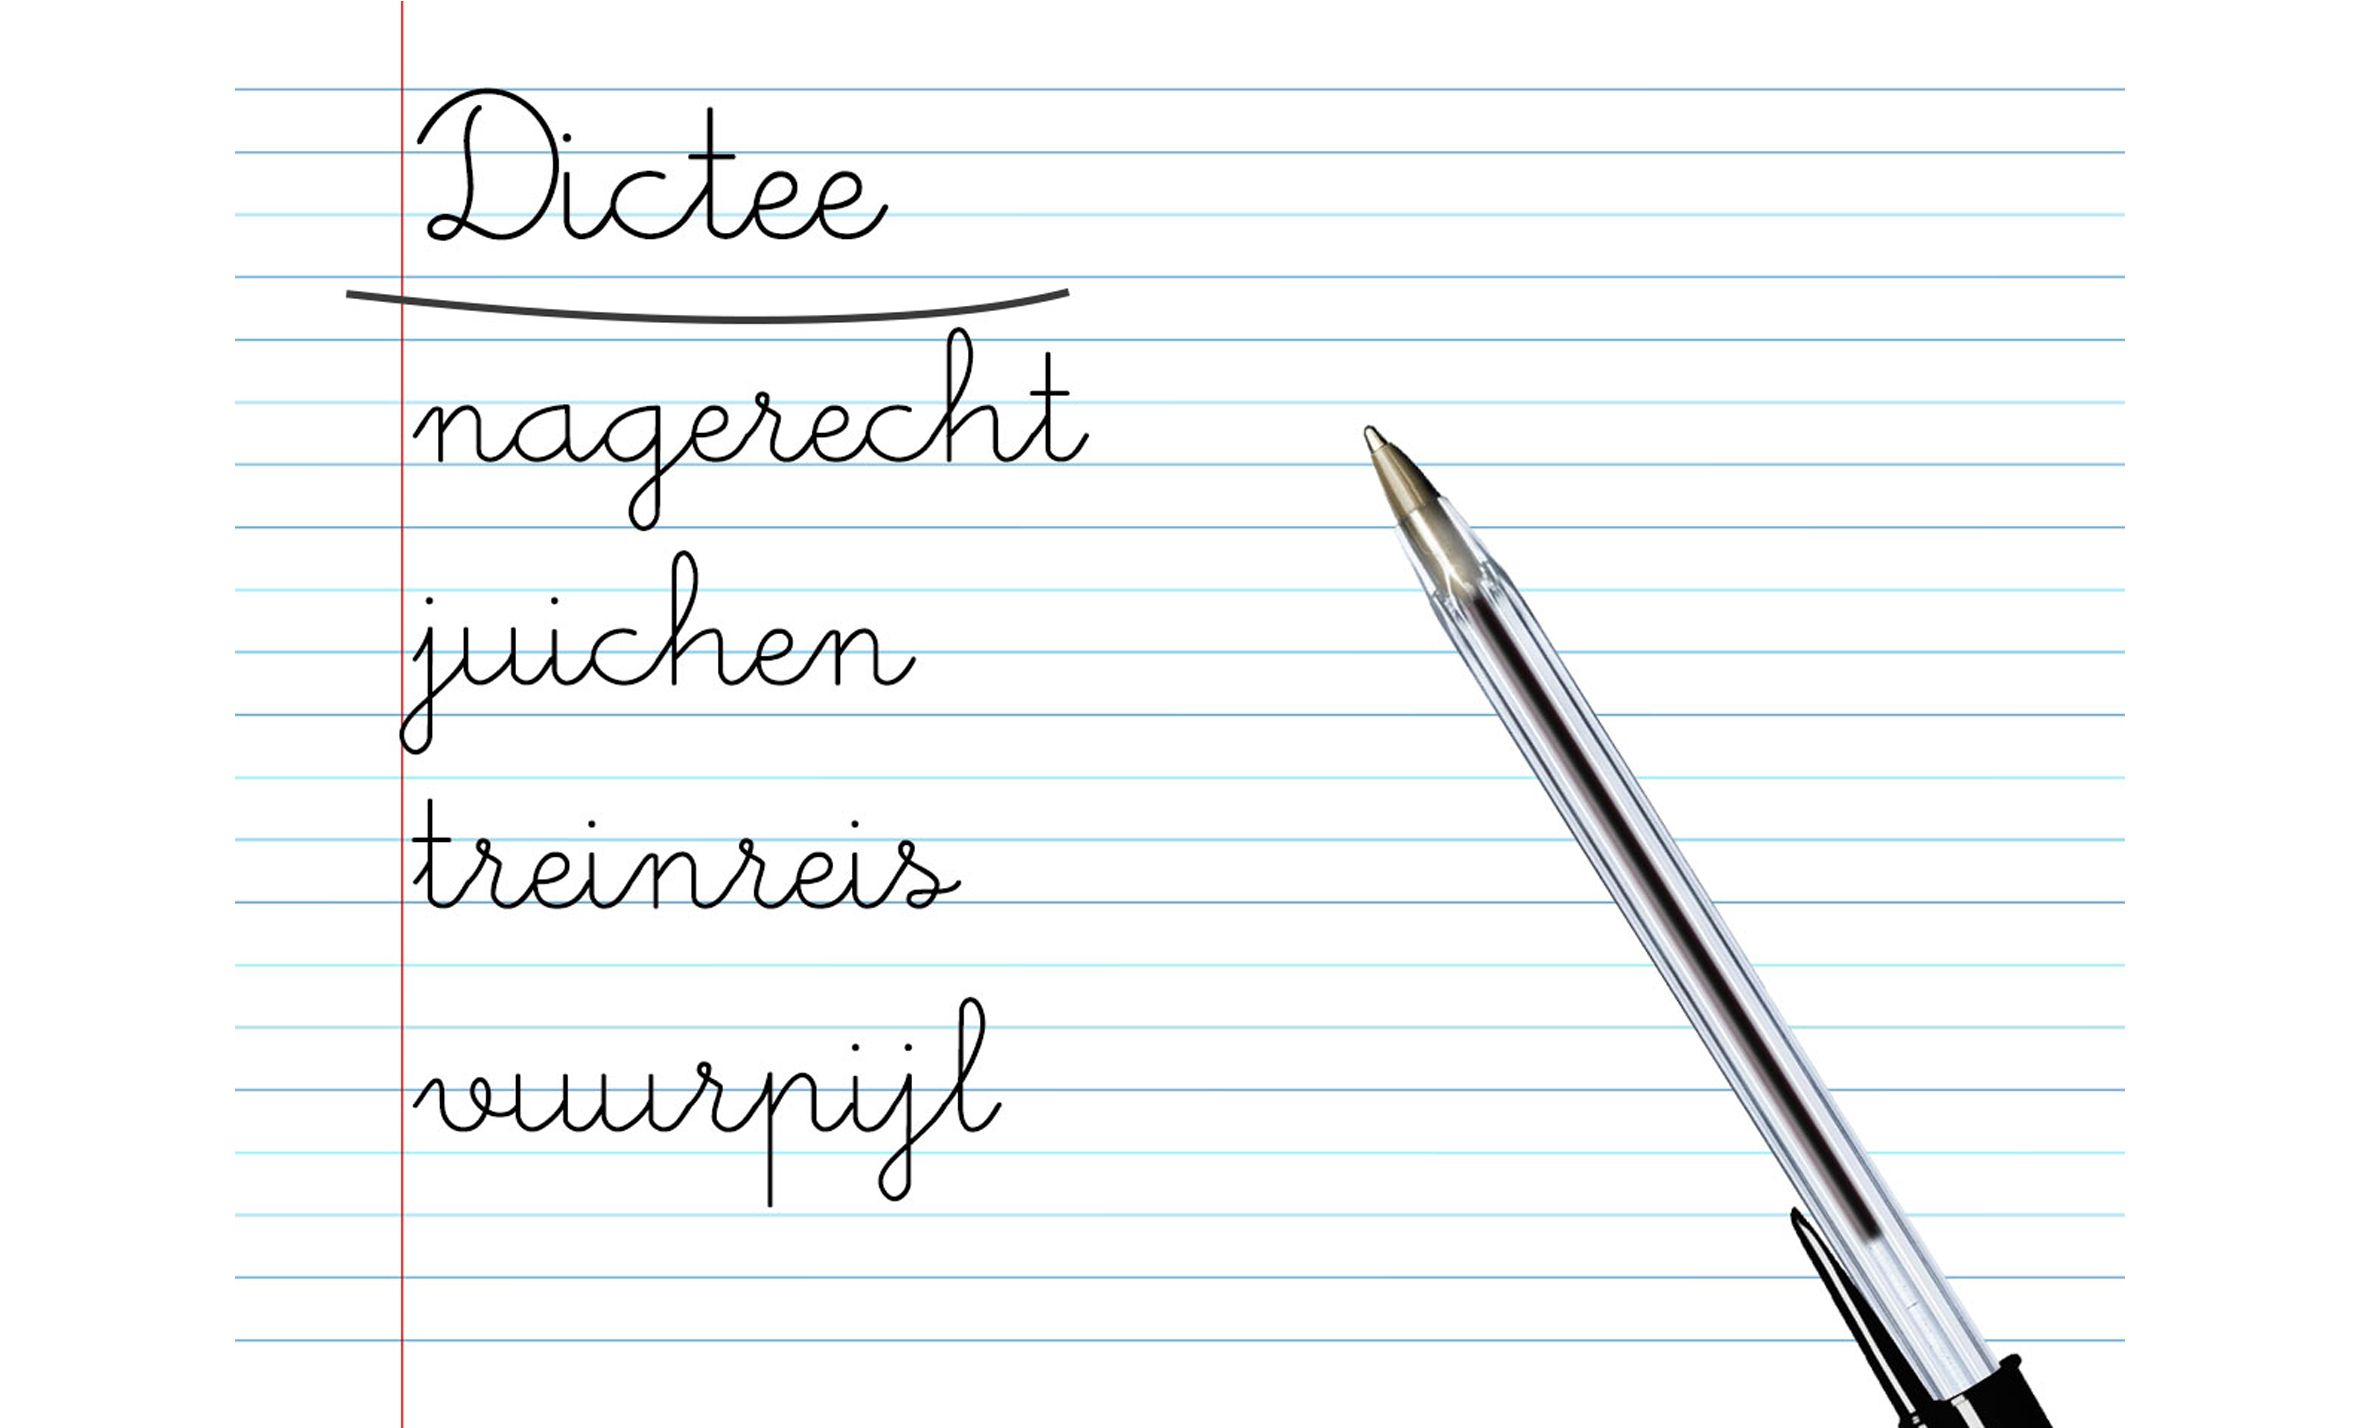 Dictee
nagerecht
juichen
treinreis
vuurpijl